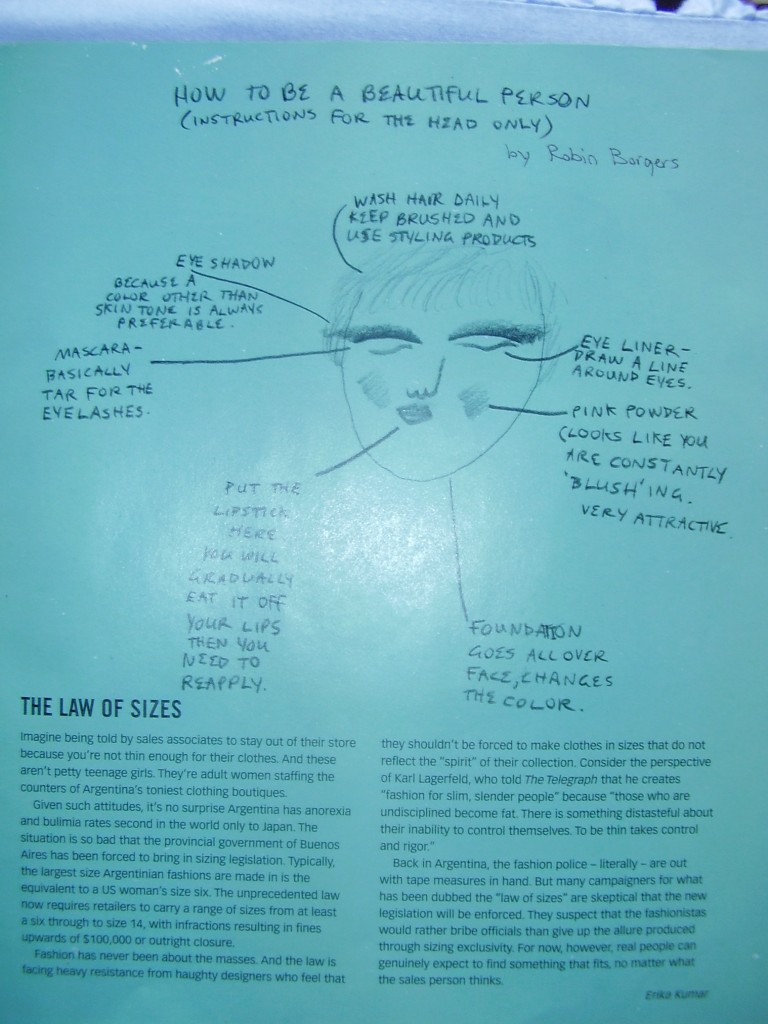 HOW TO BE A BEAUTIFUL PERSON
(INSTRUCTIONS FOR THE HEAD ONLY)
by Robin Borgers
WASH HAIR DAILY
KEEP BRUSHED AND
USE STYLING PRODUCTS
EYE SHADOW
BECAUSE A
COLOR OTHER THAN
SKIN TONE IS ALWAYS
PREFERABLE.
MASCARA-
BASICALLY
TAR FOR THE
EYELASHES.
EYE LINER-
DRAW A LINE
AROUND EYES.
PINK POWDER
(LOOKS LIKE YOU
ARE CONSTANTLY
'BLUSH'ING.
VERY ATTRACTIVE.
PUT THE
LIPSTICK
HERE
YOU WILL
GRADUALLY
EAT IT OFF
YOUR LIPS
THEN YOU
NEED TO
REAPPLY.
FOUNDATION
GOES ALL OVER
FACE, CHANGES
THE COLOR.
THE LAW OF SIZES
Imagine being told by sales associates to stay out of their store
because you're not thin enough for their clothes. And these
aren't petty teenage girls. They're adult women staffing the
counters of Argentina's toniest clothing boutiques.
Given such attitudes, it's no surprise Argentina has anorexia
and bulimia rates second in the world only to Japan. The
situation is so bad that the provincial government of Buenos
Aires has been forced to bring in sizing legislation. Typically,
the largest size Argentinian fashions are made in is the
equivalent to a US woman's size six. The unprecedented law
now requires retailers to carry a range of sizes from at least
a six through to size 14, with infractions resulting in fines
upwards of $100,000 or outright closure.
Fashion has never been about the masses. And the law is
facing heavy resistance from haughty designers who feel that
they shouldn't be forced to make clothes in sizes that do not
reflect the "spirit" of their collection. Consider the perspective
of Karl Lagerfeld, who told The Telegraph that he creates
"fashion for slim, slender people" because "those who are
undisciplined become fat. There is something distasteful about
their inability to control themselves. To be thin takes control
and rigor."
Back in Argentina, the fashion police – literally – are out
with tape measures in hand. But many campaigners for what
has been dubbed the "law of sizes" are skeptical that the new
legislation will be enforced. They suspect that the fashionistas
would rather bribe officials than give up the allure produced
through sizing exclusivity. For now, however, real people can
genuinely expect to find something that fits, no matter what
the sales person thinks.
Erika Kumar